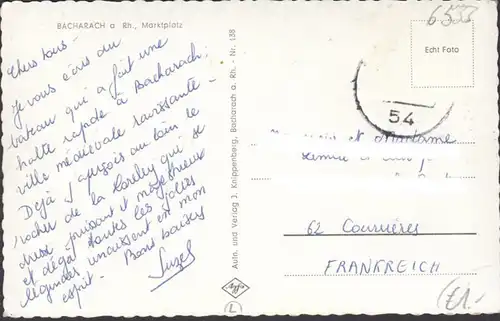 BACHARACH a Rh., Marktplatz
Chers tous -
Je vous écris du
bateau qui a fait une
halte rapide à Bacharach,
ville médiévale ravissante -
Déjà j'aperçois au loin le
rocher de la Loreley qui se
dresse puissant et mystérieux
et déjà toutes les jolies
légendes renaissent en mon
esprit - Bons baisers
Suzel
Autn. und Verlag J. Knippenberg, Bacharach a. Rh. - Nr. 138
Echt Foto
54
et Madame
62 Courrières
FRANKREICH
L
£1.-